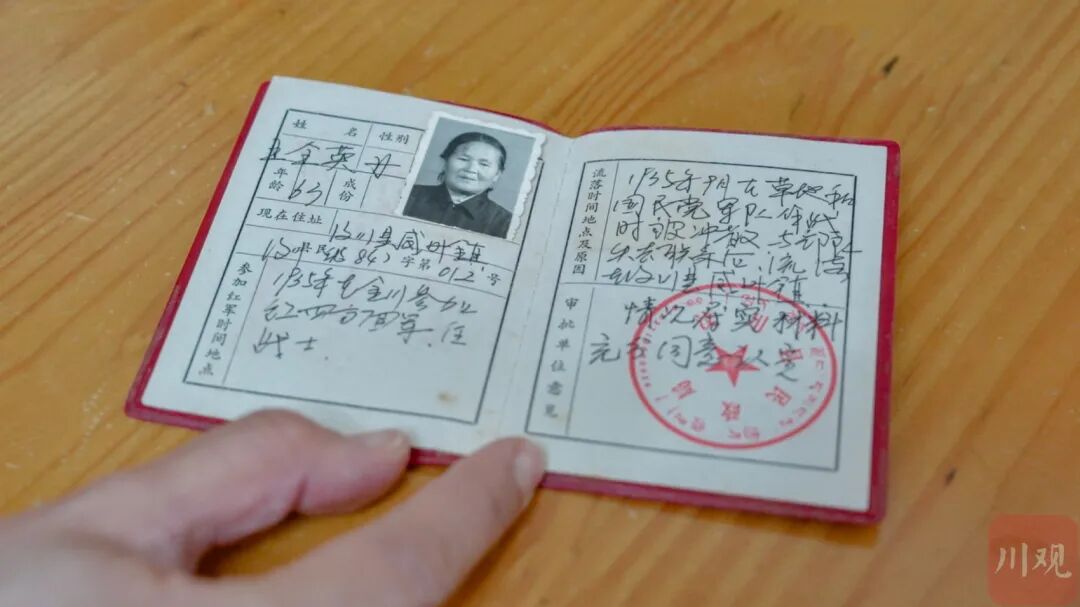 姓 名 性别
王全英 女
年龄 63 成份
现在住址 汶川县威州镇
汶川县民 84 字第012号
参加红军时间地点
1935年在金川参加
红四方面军,任
战士.
流落时间地点及原因
1935年9月在草地和
国民党军队作战
时被冲散,与部队
失去联系后,流落
在汶川县威州镇.
审批单位意见
情况属实 材料
充分同意认定
民政局
川观